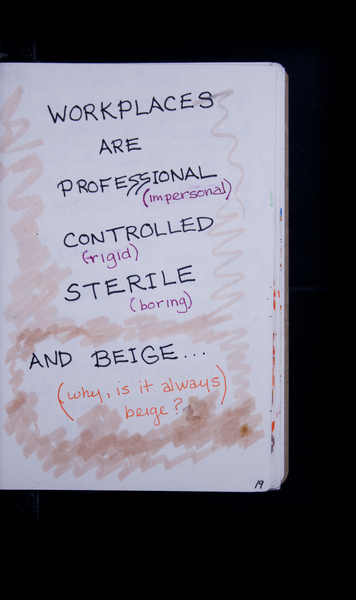 WORKPLACES
ARE
PROFESSIONAL
(impersonal)
CONTROLLED
(rigid)
STERILE
(boring)
AND BEIGE...
(why, is it always
beige?)
19